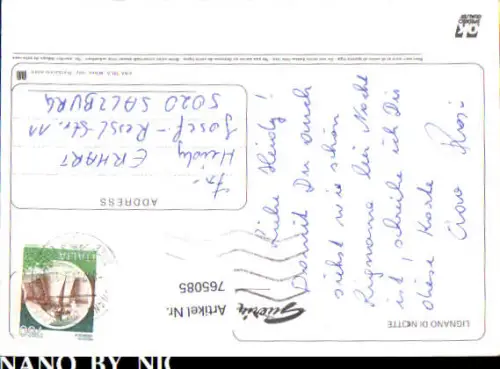 LIGNANO DI NOTTE
Liebe Heidy!
Damit Du auch
siehst wie schön
Rignano bei Nacht
ist, schreibe ich Dir
diese Karte
Ciao Rosi
Artikel Nr.
765085
ITALIA
ADDRESS
Fr.
Heidy ERHART
Josef-Ressl-Str. 11
5020 SALZBURG
NANO BY NIG